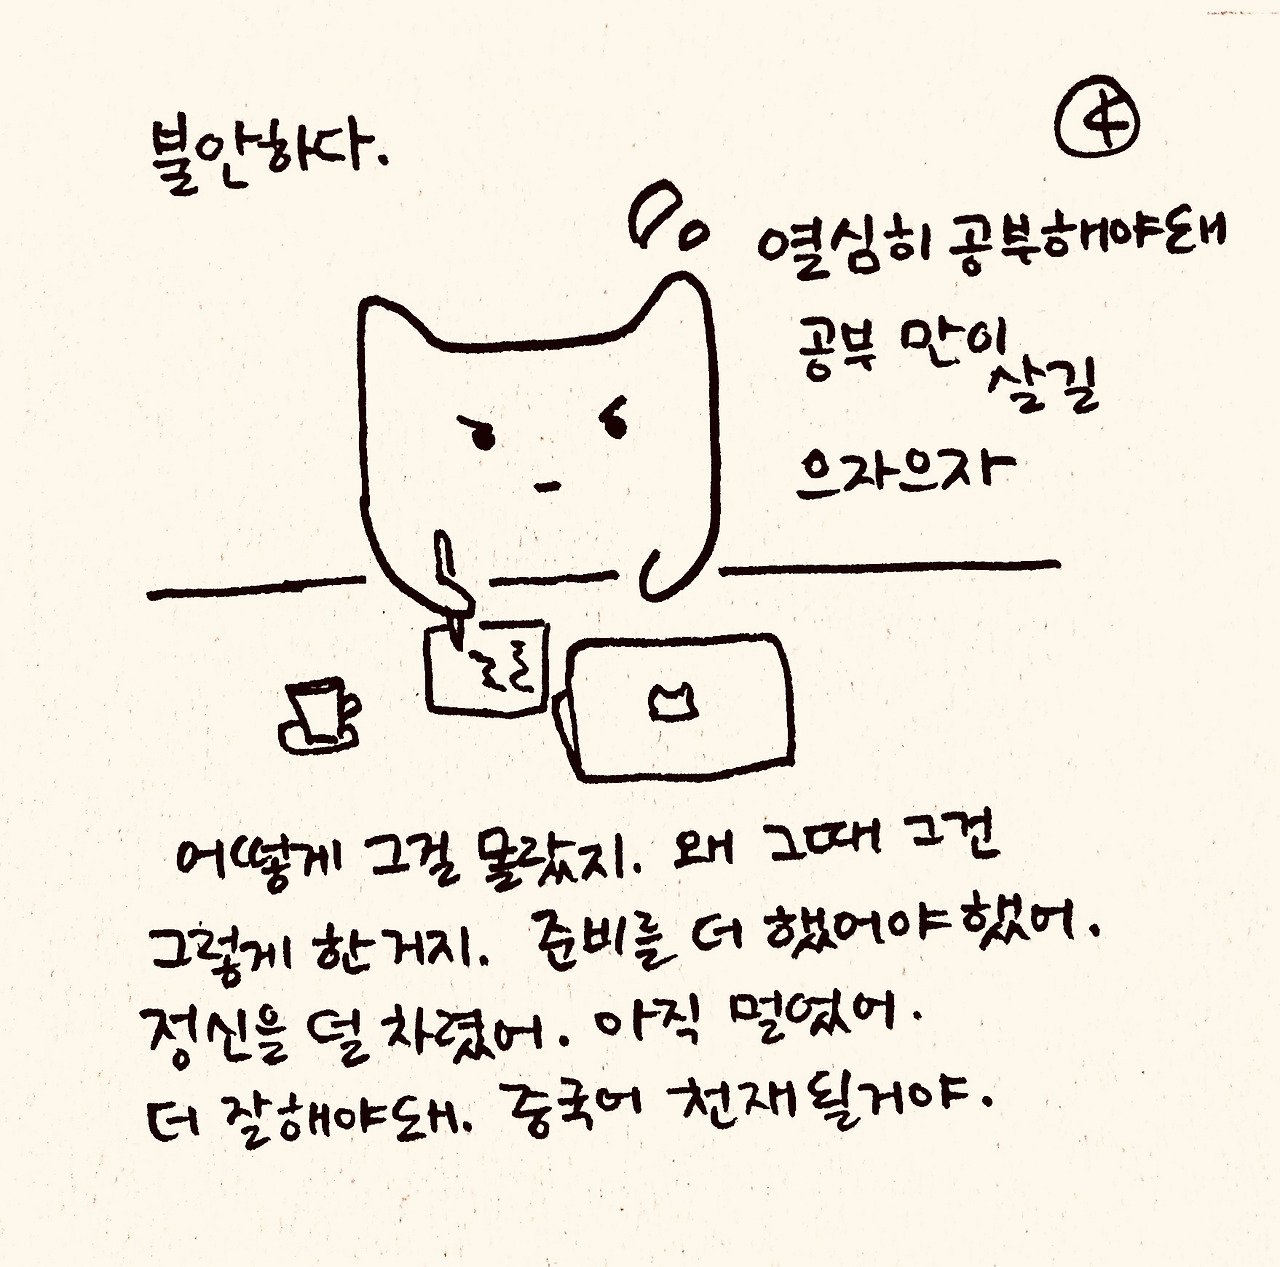 불안하다.
4
열심히 공부해야돼
공부 만이
살길
으자으자
어떻게 그걸 몰랐지. 왜 그때 그건
그렇게 한거지. 준비를 더 했어야했어.
정신을 덜 차렸어. 아직 멀었어.
더 잘해야돼. 중국어 천재될거야.